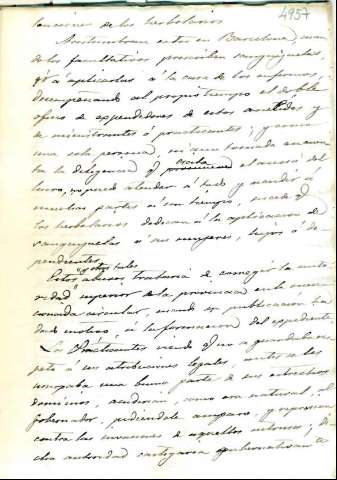 4957
funciones de los herbolarios
Acostumbran estos en Barcelona, cuando
los facultativos prescriben sanguijuelas,
á aplicarlas á la casa de los enfermos,
desempeñando al propio tiempo el doble
oficio de expendedores de estos anelidos y
de ministrantes ó practicantes; y como
una sola persona, ni aun tomada en cuenta
la diligencia q. excita el ansia del
lucro, no puede atender á todo y acudir á
muchas partes á un tiempo, sucede q.
los herbolarios dedican á la aplicacion de
sanguijuelas á sus mugeres, hijos ó de
pendientes.
Estos y otros tales abusos, trataria de corregir la auto
ridad superior de la provincia en la men
cionada circular, cuando su publicacion ha
dado motivo á la formacion del expediente.
Los Practicantes viendo q. no se guardaba res
peto á sus atribuciones legales, antes se les
usurpaba una buena parte de sus estrechos
dominios, acudieron, como era natural, al
Gobernador, pidiendole amparo y represion
contra las invasiones de aquellos intrusos; di
cha autoridad castigaria gubernativam.te